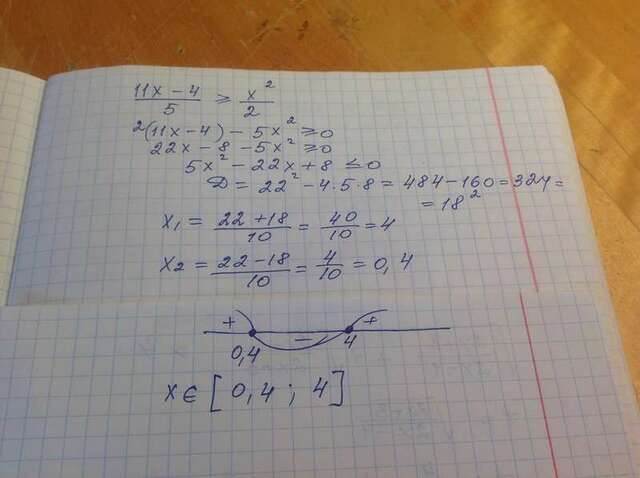 (11x - 4)/5 ≥ x²/2
2(11x-4) - 5x² ≥ 0
22x - 8 - 5x² ≥ 0
5x² - 22x + 8 ≤ 0
D = 22² - 4·5·8 = 484 - 160 = 324 =
= 18²
x₁ = (22+18)/10 = 40/10 = 4
x2 = (22-18)/10 = 4/10 = 0,4
+ − +
0,4 4
x ∈ [0,4 ; 4]